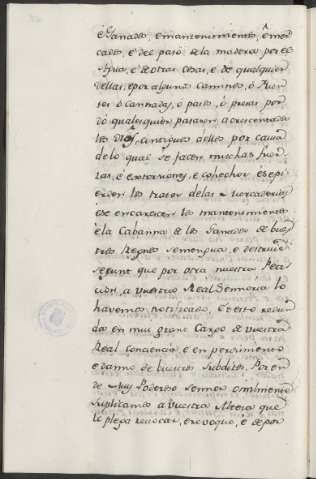 e Ganados, e mantenimientos, e mer
cados, e del paso de la madera por el
Agua, e de otras cosas, e de qualquier
dellas, e por algunos caminos, ó Puen
tes ó Calzadas, ó pasos, ó presas por
dó qualesquier pasaron, acrescentados
los dros, e nuevos dellos por causa
de lo qual se facen muchas fuer
zas, é extorsiones, e cohechos, é se pi
erden los tratos de las mercaderias
é se encarescen los mantenimientos
é la Cabanna de los Ganados de bues
tros Regnos se mengua, e destruie
segunt que por otra nuestra Peti
cion, a vuestra Real Sennoria lo
havemos notificado. É esto redun
da en mui grant Cargo de vuestra
Real conciencia, é en perdimiento
e danno de buestros Subditos. Por en
de Muy Poderoso Sennor omilmente
suplicamos a vuestra Alteza que
le plega revocar, é revoque, é de por